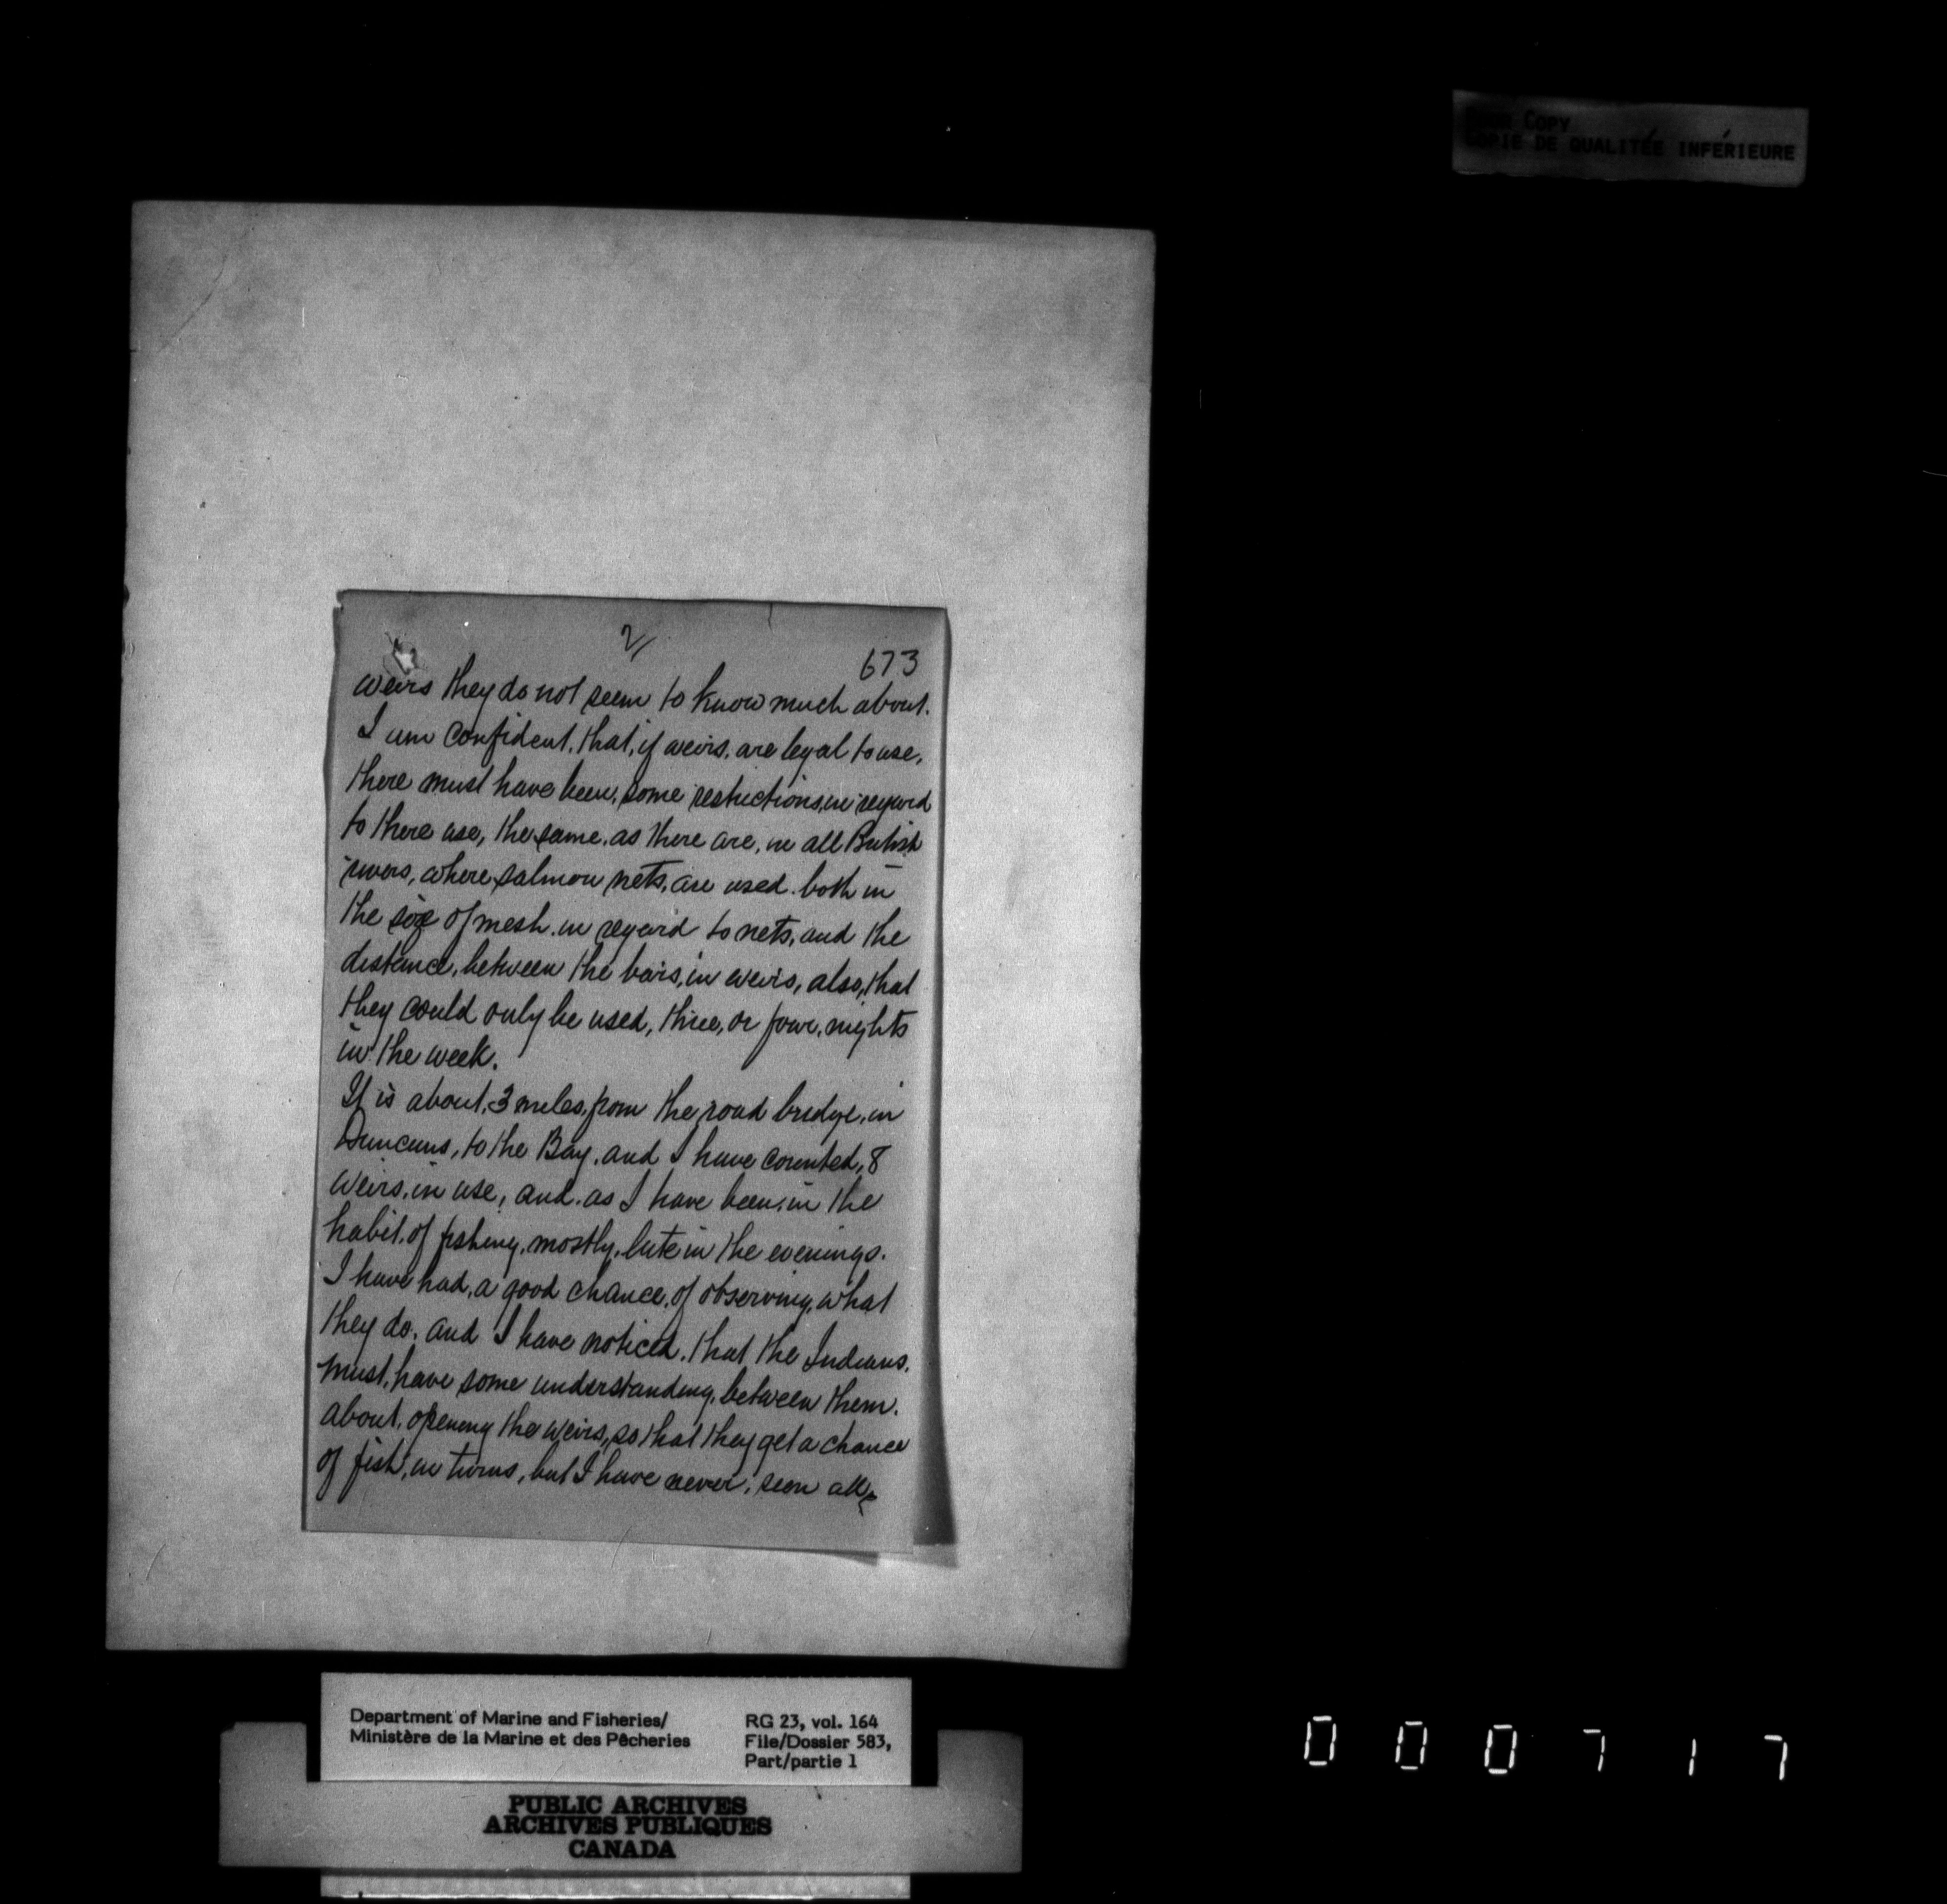 Poor Copy
COPIE DE QUALITÉE INFÉRIEURE
2/
673
weirs they do not seem to know much about.
I am confident, that, if weirs, are legal to use,
there must have been, some restrictions, in regard
to there use, the same, as there are, in all British
rivers, where salmon nets, are used. both in
the size of mesh. in regard to nets, and the
distance, between the bars, in weirs, also, that
they could only be used, three, or four, nights
in the week.
It is about, 3 miles, from the road bridge, in
Duncans, to the Bay, and I have counted, 8
weirs, in use, and. as I have been, in the
habit, of fishing, mostly, late in the evenings.
I have had, a good chance, of observing, what
they do. and I have noticed. that the Indians.
must, have some understanding, between them.
about, opening the weirs, so that they get a chance
of fish, in turns, but I have never, seen all
Department of Marine and Fisheries/
Ministère de la Marine et des Pêcheries
RG 23, vol. 164
File/Dossier 583,
Part/partie 1
PUBLIC ARCHIVES
ARCHIVES PUBLIQUES
CANADA
000717